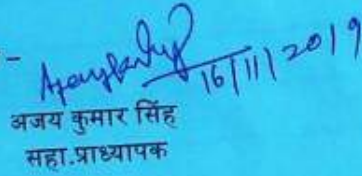 16/11/2019
अजय कुमार सिंह
सहा.प्राध्यापक